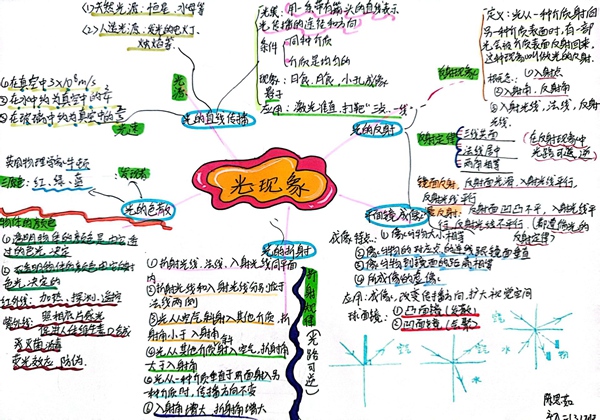 ①天然光源：恒星、水母等
②人造光源：发光的电灯、
烛焰等
光源
①在真空中3×10⁸m/s
②在水中约为真空中的3/4
③在玻璃中约为真空中的2/3
光速
光的直线传播
光线：用一条带有箭头的直线表示
光传播的径迹和方向
条件
同种介质
介质是均匀的
现象：日食、月食、小孔成像、
影子
应用：激光准直，射击"三点一线"
光的反射
反射现象
定义：光从一种介质射向
另一种介质表面时，有一部
光会被介质表面反射回来，
这种现象叫做光的反射。
①入射点
②入射角，反射角
③入射光线，法线，反射
光线
反射定律
三线共面
法线居中
两角相等
在反射现象中
光路可逆
镜面反射：反射面光滑，入射光线平行，
反射光线平行
漫反射：反射面凹凸不平，入射光线平
行，反射光线不平行
平面镜成像
成像特点：①像与物大小相等
②像与物的对应点的连线跟镜面垂直
③像与物到镜面的距离相等
④所成像的虚像
应用：成像，改变传播方向，扩大视觉空间
球面镜：
①凸面镜（发散）
②凹面镜（会聚）
光现象
光的色散
英国物理学家牛顿
三原色：红、绿、蓝
物体的颜色
①透明物体的颜色是由它透
过的色光决定
②不透明物体的颜色由它反射
色光决定的
红外线：加热，探测，遥控
紫外线：
杀灭菌消毒
荧光效应，防伪
光的折射
①折射光线、法线、入射光线同平面
内
②折射光线和入射光线分别位于
法线两侧
③光从空气斜射入其他介质，折
射角小于入射角
④光从其他介质射入空气，折射角
大于入射角
⑤光从一种介质垂直于界面射入另
一种介质时，传播方向不变
⑥入射角增大，折射角增大
折射规律（光路可逆）
空气
水
空气
水